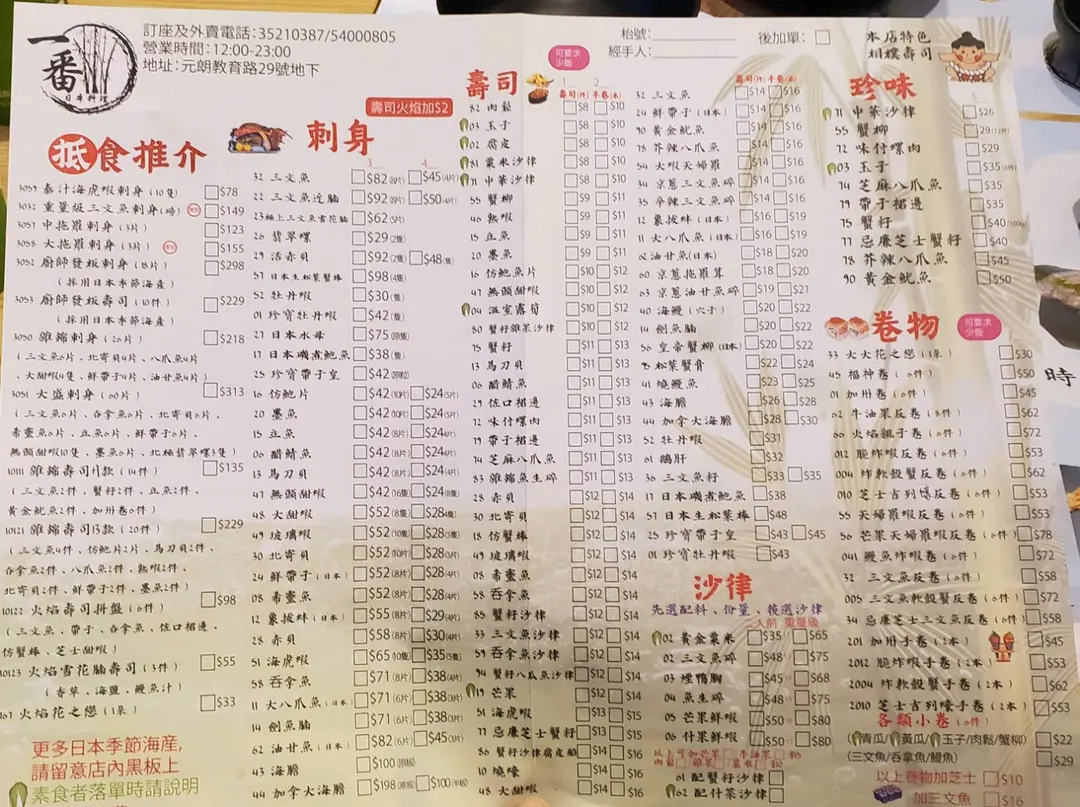 一番
日本料理
訂座及外賣電話:35210387/54000805
營業時間:12:00-23:00
地址:元朗教育路29號地下
枱號:
經手人:
後加單:
本店特色
相撲壽司
壽司火焰加$2
抵食推介
3059 泰汁海虎蝦刺身(10隻) $78
3032 重量級三文魚刺身(磅) $149
3057 中拖羅刺身(3片) $123
3058 大拖羅刺身(3片) $155
3052 廚師發板刺身(18片) $298
(採用日本季節海產)
3053 廚師發板壽司(10件) $229
(採用日本季節海產)
3050 雜錦刺身(26片) $218
(三文魚6片、北寄貝4片、八爪魚4片
、大甜蝦4隻、鮮帶子4片、油甘魚4片)
3051 大盛刺身(60片) $313
(三文魚6片、吞拿魚6片、北寄貝6片、
希靈魚6片、立魚6片、鮮帶子6片、
無頭甜蝦10隻、墨魚6片、北極翡翠螺3隻)
10111 雜錦壽司1款(14件) $135
(三文魚2件、蟹籽2件、立魚2件、
黃金魷魚2件、加州卷6件)
10121 雜錦壽司3款(20件) $229
(三文魚4件、仿鮑片2片、馬刀貝2件、
吞拿魚2件、八爪魚2件、熟蝦2件、
北寄貝2件、鮮帶子2件、墨魚2件)
10122 火焰壽司拼盤(6件) $98
(三文魚、帶子、吞拿魚、佐口裙邊、
仿蟹棒、芝士甜蝦)
10123 火焰雪花腩壽司(3件) $55
(香草、海鹽、鰻魚汁)
161 火焰花之戀(1粒) $33
更多日本季節海産,
請留意店內黑板上
素食者落單時請說明
刺身
3... 4...
32 三文魚 $82(8片) $45(4片)
22 三文魚近腩 $92(8片) $50(4片)
23 極上三文魚雪花腩 $62(5片)
26 翡翠螺 $29(2隻)
29 活赤貝 $92(2隻) $48(隻)
57 日本生松葉蟹棒 $98(4隻)
52 牡丹蝦 $30(隻)
01 珍寶牡丹蝦 $42(隻)
27 日本水母 $75(原隻)
17 日本磯煮鮑魚 $38(隻)
25 珍寶帶子皇 $42(原粒)
16 仿鮑片 $42(10片) $24(5片)
20 墨魚 $42(10片) $24(5片)
15 立魚 $42(8片) $24(4片)
06 醋鯖魚 $42(8片) $24(4片)
13 馬刀貝 $42(8片) $24(4片)
47 無頭甜蝦 $42(16隻) $24(8隻)
48 大甜蝦 $52(8隻) $28(4隻)
49 玻璃蝦 $52(10隻) $28(5隻)
30 北寄貝 $52(10片) $28(5片)
24 鮮帶子(日本) $52(8片) $28(4片)
08 希靈魚 $52(8片) $28(4片)
12 象拔蚌(日本) $55(8片) $29(4片)
28 赤貝 $58(8片) $30(4片)
51 海虎蝦 $65(10隻) $35(5隻)
58 吞拿魚 $71(8片) $38(4片)
11 大八爪魚(日本) $71(6片) $38(3片)
14 劍魚腩 $71(6片) $38(3片)
62 油甘魚(日本) $82(6片) $45(3片)
43 海膽 $100(原板)
44 加拿大海膽 $198(原板) $100(半板)
壽司
可要求
少飯
1... 2...
壽司(件) 手卷(本)
82 肉鬆 $8 $10
03 玉子 $8 $10
02 腐皮 $8 $10
81 粟米沙律 $8 $10
71 中華沙律 $8 $10
55 蟹柳 $9 $11
46 熟蝦 $9 $11
15 立魚 $9 $11
20 墨魚 $9 $11
16 仿鮑魚片 $10 $12
47 無頭甜蝦 $10 $12
04 溫室露筍 $10 $12
80 蟹籽雜果沙律 $10 $12
75 蟹籽 $11 $13
13 馬刀貝 $11 $13
06 醋鯖魚 $11 $13
29 佐口裙邊 $11 $13
72 味付螺肉 $11 $13
79 帶子裙邊 $11 $13
74 芝麻八爪魚 $11 $13
83 雜錦魚生碎 $11 $13
28 赤貝 $12 $14
30 北寄貝 $12 $14
18 仿蟹棒 $12 $14
49 玻璃蝦 $12 $14
08 希靈魚 $12 $14
58 吞拿魚 $12 $14
85 蟹籽沙律 $12 $14
33 三文魚沙律 $12 $14
59 吞拿魚沙律 $12 $14
94 蟹籽八爪魚沙律 $12 $14
19 芒果 $12 $14
51 海虎蝦 $13 $15
77 忌廉芝士蟹籽 $13 $15
86 蟹籽沙律腐皮船 $14 $16
10 燒嚎 $14 $16
48 大甜蝦 $14 $16
壽司(件) 手卷(本)
32 三文魚 $14 $16
24 鮮帶子(日本) $14 $16
90 黃金魷魚 $14 $16
78 芥辣八爪魚 $14 $16
54 大蝦天婦羅 $14 $16
34 京蔥三文魚碎 $14 $16
35 辛辣三文魚碎 $14 $16
12 象拔蚌(日本) $16 $19
11 大八爪魚(日本) $16 $19
62 油甘魚(日本) $18 $20
60 京蔥拖羅茸 $18 $20
63 京蔥油甘魚碎 $19 $21
40 海鰻(穴子) $20 $22
14 劍魚腩 $20 $22
56 皇帝蟹柳(日本) $20 $22
松葉蟹膏 $22 $24
41 燒鰻魚 $23 $25
43 海膽 $26 $28
44 加拿大海膽 $28 $30
52 牡丹蝦 $31
61 鵝肝 $32
36 三文魚籽 $33 $35
17 日本磯煮鮑魚 $38
57 日本生松葉棒 $48
25 珍寶帶子皇 $43 $45
01 珍寶牡丹蝦 $43
沙律
先選配料、份量、後選沙律
二人前 重量級
02 黃金粟米 $35 $65
02 三文魚碎 $48 $75
03 煙鴨胸 $45 $73
04 魚生碎 $48 $75
05 芒果鮮蝦 $50 $80
06 什果鮮蝦 $50 $80
61 配蟹籽沙律
62 配什菜沙律
珍味
5...
71 中華沙律 $26
55 蟹柳 $29
72 味付螺肉 $29
03 玉子 $35
74 芝麻八爪魚 $35
79 帶子裙邊 $35
75 蟹籽 $40
77 忌廉芝士蟹籽 $40
78 芥辣八爪魚 $45
90 黃金魷魚 $50
卷物
可要求
少飯
33 大大花之戀(1粒) $30
45 福神卷(6件) $50
01 加州卷(6件) $45
62 牛油果反卷(8件) $62
66 火焰親子卷(6件) $72
012 脆炸蝦反卷(6件) $53
004 炸軟殼蟹反卷(6件) $62
010 芝士吉列嚎反卷(6件) $53
55 天婦羅蝦反卷(6件) $53
56 芒果天婦羅蝦反卷(6件) $78
041 鰻魚炸蝦卷(6件) $72
32 三文魚反卷(6件) $58
005 三文魚軟殼蟹反卷(6件) $72
34 忌廉芝士三文魚反卷(6件) $58
201 加州手卷(2本) $45
2012 脆炸蝦手卷(2本) $53
2004 炸軟殼蟹手卷(2本) $62
2010 芝士吉列嚎手卷(2本) $53
各類小卷(6件)
(青瓜/黃瓜/玉子/肉鬆/蟹柳) $22
(三文魚/吞拿魚/鰻魚) $29
以上卷物加芝士 $10
加三文魚 $16
時